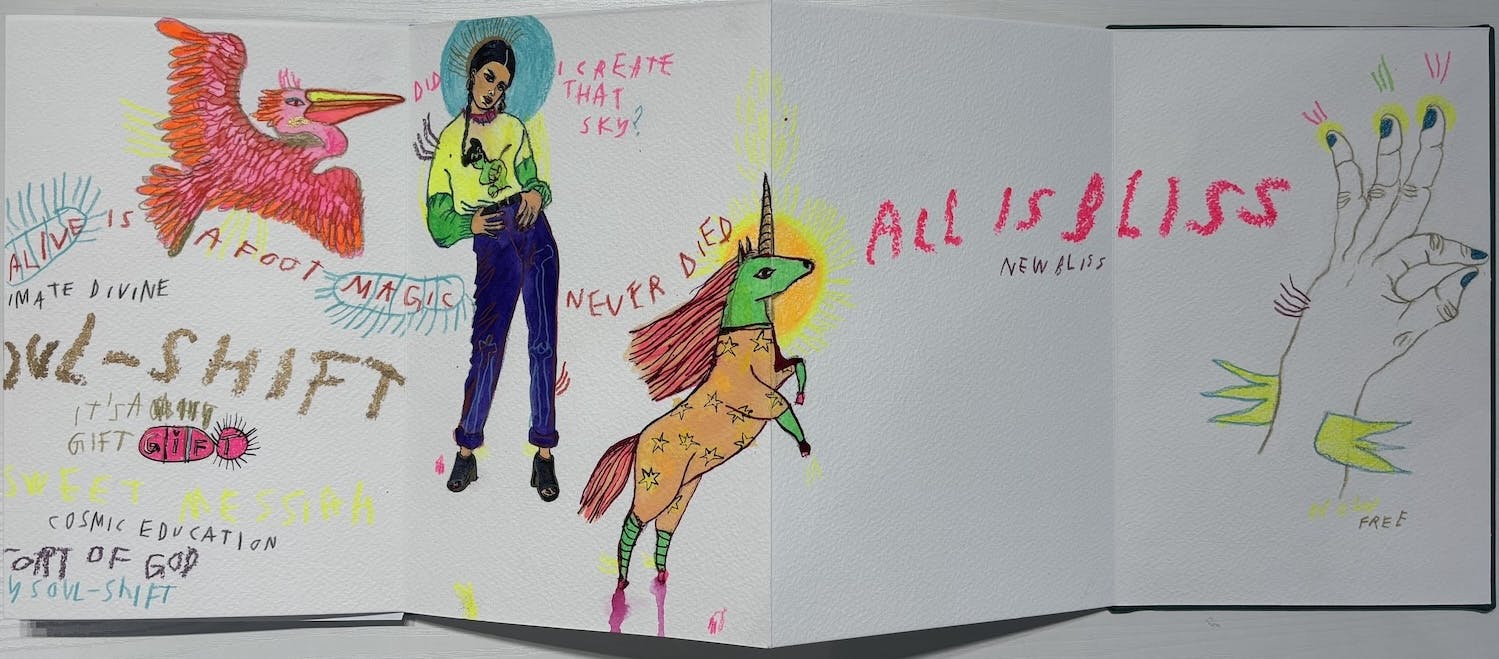 DID I CREATE
THAT
SKY?
ALIVE IS A FOOT MAGIC NEVER DIED
IMATE DIVINE
OUL-SHIFT
IT'S A
GIFT GiFT
SWEET MESSIAH
COSMIC EDUCATION
ORT OF GOD
Y SOUL-ShIFT
ALL IS BLISS
NEW BLISS
FREE